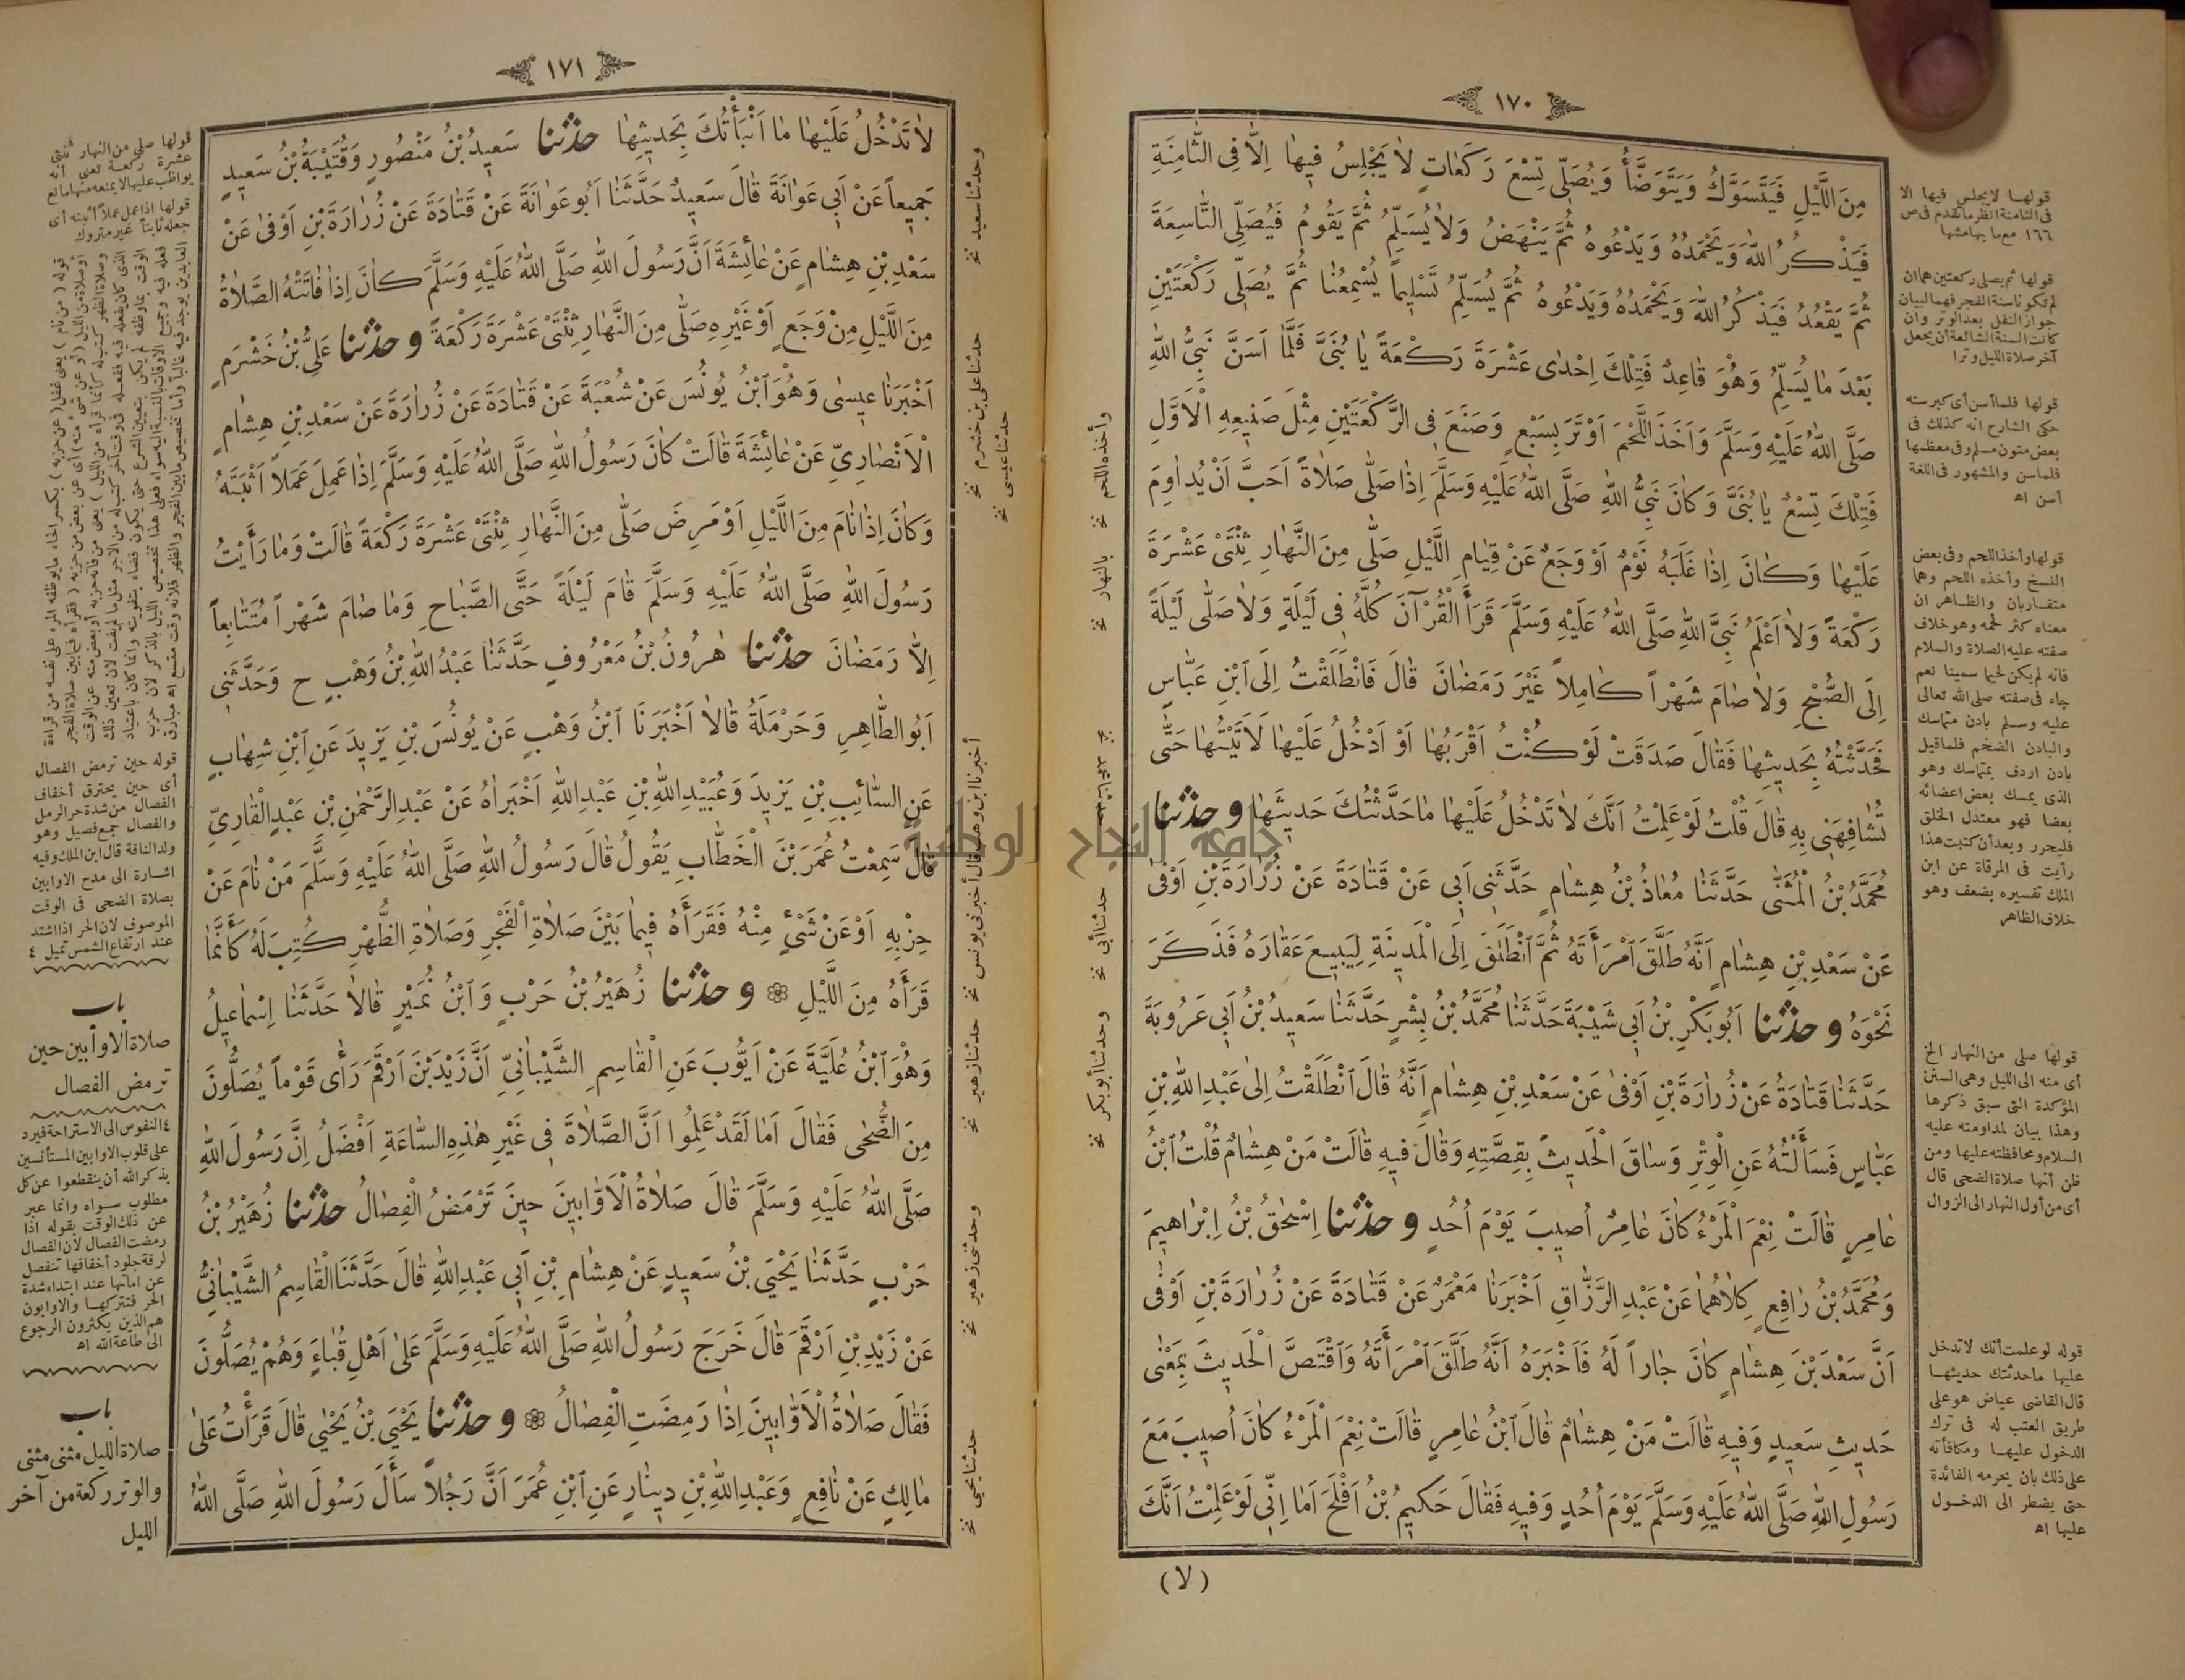 ١٧٠
مِنَ اللَّيْلِ فَيَتَسَوَّكُ وَيَتَوَضَّأُ وَيُصَلِّي تِسْعَ رَكَعَاتٍ لَا يَجْلِسُ فِيهَا اِلَّا فِي الثَّامِنَةِ
فَيَذْكُرُ اللّٰهَ وَيَحْمَدُهُ وَيَدْعُوهُ ثُمَّ يَنْهَضُ وَلَا يُسَلِّمُ ثُمَّ يَقُومُ فَيُصَلِّي التَّاسِعَةَ
ثُمَّ يَقْعُدُ فَيَذْكُرُ اللّٰهَ وَيَحْمَدُهُ وَيَدْعُوهُ ثُمَّ يُسَلِّمُ تَسْلِيماً يُسْمِعُنَا ثُمَّ يُصَلِّي رَكْعَتَيْنِ
بَعْدَ مَا يُسَلِّمُ وَهُوَ قَاعِدٌ فَتِلْكَ اِحْدٰى عَشْرَةَ رَكْعَةً يَا بُنَيَّ فَلَمَّا اَسَنَّ نَبِيُّ اللّٰهِ
صَلَّى اللّٰهُ عَلَيْهِ وَسَلَّمَ وَاَخَذَ اللَّحْمَ اَوْتَرَ بِسَبْعٍ وَصَنَعَ فِي الرَّكْعَتَيْنِ مِثْلَ صَنِيعِهِ الْاَوَّلِ
فَتِلْكَ تِسْعٌ يَا بُنَيَّ وَكَانَ نَبِيُّ اللّٰهِ صَلَّى اللّٰهُ عَلَيْهِ وَسَلَّمَ اِذَا صَلَّى صَلَاةً اَحَبَّ اَنْ يُدَاوِمَ
عَلَيْهَا وَكَانَ اِذَا غَلَبَهُ نَوْمٌ اَوْ وَجَعٌ عَنْ قِيَامِ اللَّيْلِ صَلَّى مِنَ النَّهَارِ ثِنْتَيْ عَشْرَةَ
رَكْعَةً وَلَا اَعْلَمُ نَبِيَّ اللّٰهِ صَلَّى اللّٰهُ عَلَيْهِ وَسَلَّمَ قَرَأَ الْقُرْآنَ كُلَّهُ فِي لَيْلَةٍ وَلَا صَلَّى لَيْلَةً
اِلَى الصُّبْحِ وَلَا صَامَ شَهْراً كَامِلاً غَيْرَ رَمَضَانَ قَالَ فَانْطَلَقْتُ اِلَى ابْنِ عَبَّاسٍ
فَحَدَّثْتُهُ بِحَدِيثِهَا فَقَالَ صَدَقَتْ لَوْ كُنْتُ اَقْرَبُهَا اَوْ اَدْخُلُ عَلَيْهَا لَاَتَيْتُهَا حَتَّى
تُشَافِهَنِي بِهِ قَالَ قُلْتُ لَوْ عَلِمْتُ اَنَّكَ لَا تَدْخُلُ عَلَيْهَا مَا حَدَّثْتُكَ حَدِيثَهَا وحدثنا
مُحَمَّدُ بْنُ الْمُثَنَّى حَدَّثَنَا مُعَاذُ بْنُ هِشَامٍ حَدَّثَنِي اَبِي عَنْ قَتَادَةَ عَنْ زُرَارَةَ بْنِ اَوْفٰى
عَنْ سَعْدِ بْنِ هِشَامٍ اَنَّهُ طَلَّقَ امْرَأَتَهُ ثُمَّ انْطَلَقَ اِلَى الْمَدِينَةِ لِيَبِيعَ عَقَارَهُ فَذَكَرَ
نَحْوَهُ وحدثنا اَبُو بَكْرِ بْنُ اَبِي شَيْبَةَ حَدَّثَنَا مُحَمَّدُ بْنُ بِشْرٍ حَدَّثَنَا سَعِيدُ بْنُ اَبِي عَرُوبَةَ
حَدَّثَنَا قَتَادَةُ عَنْ زُرَارَةَ بْنِ اَوْفٰى عَنْ سَعْدِ بْنِ هِشَامٍ اَنَّهُ قَالَ انْطَلَقْتُ اِلٰى عَبْدِ اللّٰهِ بْنِ
عَبَّاسٍ فَسَأَلْتُهُ عَنِ الْوِتْرِ وَسَاقَ الْحَدِيثَ بِقِصَّتِهِ وَقَالَ فِيهِ قَالَتْ مَنْ هِشَامٌ قُلْتُ ابْنُ
عَامِرٍ قَالَتْ نِعْمَ الْمَرْءُ كَانَ عَامِرٌ اُصِيبَ يَوْمَ اُحُدٍ وحدثنا اِسْحٰقُ بْنُ اِبْرَاهِيمَ
وَمُحَمَّدُ بْنُ رَافِعٍ كِلَاهُمَا عَنْ عَبْدِ الرَّزَّاقِ اَخْبَرَنَا مَعْمَرٌ عَنْ قَتَادَةَ عَنْ زُرَارَةَ بْنِ اَوْفٰى
اَنَّ سَعْدَ بْنَ هِشَامٍ كَانَ جَاراً لَهُ فَاَخْبَرَهُ اَنَّهُ طَلَّقَ امْرَأَتَهُ وَاقْتَصَّ الْحَدِيثَ بِمَعْنٰى
حَدِيثِ سَعِيدٍ وَفِيهِ قَالَتْ مَنْ هِشَامٌ قَالَ ابْنُ عَامِرٍ قَالَتْ نِعْمَ الْمَرْءُ كَانَ اُصِيبَ مَعَ
رَسُولِ اللّٰهِ صَلَّى اللّٰهُ عَلَيْهِ وَسَلَّمَ يَوْمَ اُحُدٍ وَفِيهِ فَقَالَ حَكِيمُ بْنُ اَفْلَحَ اَمَا اِنِّي لَوْ عَلِمْتُ اَنَّكَ
(٧)
قولها لا يجلس فيها الا
فى الثامنة انظر ماتقدم فى ص
١٦٦ مع ما بهامشها
قولها ثم يصلى ركعتين هما ان
لم تكونا سنة الفجر فهما لبيان
جواز النفل بعد الوتر وان
كانت السنة الشائعة أن يجعل
آخر صلاة الليل وترا
قولها فلما أسن أى كبر سنه
حكى الشارح انه كذلك فى
بعض متون مسلم وفى معظمها
فلماسن والمشهور فى اللغة
أسن اه
قولها وأخذ اللحم وفى بعض
النسخ وأخذه اللحم وهما
متقاربان والظاهر ان
معناه كثر لحمه وهو خلاف
صفته عليه الصلاة والسلام
فانه لم يكن لحيما سمينا نعم
جاء فى صفته صلى الله تعالى
عليه وسلم بادن متماسك
والبادن الضخم فلما قيل
بادن اردف بمتماسك وهو
الذى يمسك بعض اعضائه
بعضا فهو معتدل الخلق
فليحرر وبعد أن كتبت هذا
رأيت فى المرقاة عن ابن
الملك تفسيره بضعف وهو
خلاف الظاهر
قولها صلى من النهار الخ
أى منه الى الليل وهى السنن
المؤكدة التى سبق ذكرها
وهذا بيان لمداومته عليه
السلام ومحافظته عليها ومن
ظن أنها صلاة الضحى قال
أى من أول النهار الى الزوال
قوله لو علمت أنك لا تدخل
عليها ما حدثتك حديثها
قال القاضى عياض هو على
طريق العتب له فى ترك
الدخول عليها ومكافأته
على ذلك بان يحرمه الفائدة
حتى يضطر الى الدخول
عليها اه
وأخذه اللحم نخ
بالنهار نخ
حدثنا أبى نخ
وحدثنا أبو بكر نخ
١٧١
لَا تَدْخُلُ عَلَيْهَا مَا اَنْبَأْتُكَ بِحَدِيثِهَا حدثنا سَعِيدُ بْنُ مَنْصُورٍ وَقُتَيْبَةُ بْنُ سَعِيدٍ
جَمِيعاً عَنْ اَبِي عَوَانَةَ قَالَ سَعِيدٌ حَدَّثَنَا اَبُو عَوَانَةَ عَنْ قَتَادَةَ عَنْ زُرَارَةَ بْنِ اَوْفٰى عَنْ
سَعْدِ بْنِ هِشَامٍ عَنْ عَائِشَةَ اَنَّ رَسُولَ اللّٰهِ صَلَّى اللّٰهُ عَلَيْهِ وَسَلَّمَ كَانَ اِذَا فَاتَتْهُ الصَّلَاةُ
مِنَ اللَّيْلِ مِنْ وَجَعٍ اَوْ غَيْرِهِ صَلَّى مِنَ النَّهَارِ ثِنْتَيْ عَشْرَةَ رَكْعَةً وحدثنا عَلِيُّ بْنُ خَشْرَمٍ
اَخْبَرَنَا عِيسٰى وَهُوَ ابْنُ يُونُسَ عَنْ شُعْبَةَ عَنْ قَتَادَةَ عَنْ زُرَارَةَ عَنْ سَعْدِ بْنِ هِشَامٍ
الْاَنْصَارِيِّ عَنْ عَائِشَةَ قَالَتْ كَانَ رَسُولُ اللّٰهِ صَلَّى اللّٰهُ عَلَيْهِ وَسَلَّمَ اِذَا عَمِلَ عَمَلاً اَثْبَتَهُ
وَكَانَ اِذَا نَامَ مِنَ اللَّيْلِ اَوْ مَرِضَ صَلَّى مِنَ النَّهَارِ ثِنْتَيْ عَشْرَةَ رَكْعَةً قَالَتْ وَمَا رَأَيْتُ
رَسُولَ اللّٰهِ صَلَّى اللّٰهُ عَلَيْهِ وَسَلَّمَ قَامَ لَيْلَةً حَتَّى الصَّبَاحِ وَمَا صَامَ شَهْراً مُتَتَابِعاً
اِلَّا رَمَضَانَ حدثنا هٰرُونُ بْنُ مَعْرُوفٍ حَدَّثَنَا عَبْدُ اللّٰهِ بْنُ وَهْبٍ ح وَحَدَّثَنِي
اَبُو الطَّاهِرِ وَحَرْمَلَةُ قَالَا اَخْبَرَنَا ابْنُ وَهْبٍ عَنْ يُونُسَ بْنِ يَزِيدَ عَنِ ابْنِ شِهَابٍ
عَنِ السَّائِبِ بْنِ يَزِيدَ وَعُبَيْدِ اللّٰهِ بْنِ عَبْدِ اللّٰهِ اَخْبَرَاهُ عَنْ عَبْدِ الرَّحْمٰنِ بْنِ عَبْدٍ الْقَارِيِّ
قَالَ سَمِعْتُ عُمَرَ بْنَ الْخَطَّابِ يَقُولُ قَالَ رَسُولُ اللّٰهِ صَلَّى اللّٰهُ عَلَيْهِ وَسَلَّمَ مَنْ نَامَ عَنْ
حِزْبِهِ اَوْ عَنْ شَيْءٍ مِنْهُ فَقَرَأَهُ فِيمَا بَيْنَ صَلَاةِ الْفَجْرِ وَصَلَاةِ الظُّهْرِ كُتِبَ لَهُ كَأَنَّمَا
قَرَأَهُ مِنَ اللَّيْلِ ۞ وحدثنا زُهَيْرُ بْنُ حَرْبٍ وَابْنُ نُمَيْرٍ قَالَا حَدَّثَنَا اِسْمَاعِيلُ
وَهُوَ ابْنُ عُلَيَّةَ عَنْ اَيُّوبَ عَنِ الْقَاسِمِ الشَّيْبَانِيِّ اَنَّ زَيْدَ بْنَ اَرْقَمَ رَأٰى قَوْماً يُصَلُّونَ
مِنَ الضُّحٰى فَقَالَ اَمَا لَقَدْ عَلِمُوا اَنَّ الصَّلَاةَ فِي غَيْرِ هٰذِهِ السَّاعَةِ اَفْضَلُ اِنَّ رَسُولَ اللّٰهِ
صَلَّى اللّٰهُ عَلَيْهِ وَسَلَّمَ قَالَ صَلَاةُ الْاَوَّابِينَ حِينَ تَرْمَضُ الْفِصَالُ حدثنا زُهَيْرُ بْنُ
حَرْبٍ حَدَّثَنَا يَحْيَى بْنُ سَعِيدٍ عَنْ هِشَامِ بْنِ اَبِي عَبْدِ اللّٰهِ قَالَ حَدَّثَنَا الْقَاسِمُ الشَّيْبَانِيُّ
عَنْ زَيْدِ بْنِ اَرْقَمَ قَالَ خَرَجَ رَسُولُ اللّٰهِ صَلَّى اللّٰهُ عَلَيْهِ وَسَلَّمَ عَلٰى اَهْلِ قُبَاءٍ وَهُمْ يُصَلُّونَ
فَقَالَ صَلَاةُ الْاَوَّابِينَ اِذَا رَمِضَتِ الْفِصَالُ ۞ وحدثنا يَحْيَى بْنُ يَحْيٰى قَالَ قَرَأْتُ عَلٰى
مَالِكٍ عَنْ نَافِعٍ وَعَبْدِ اللّٰهِ بْنِ دِينَارٍ عَنِ ابْنِ عُمَرَ اَنَّ رَجُلاً سَأَلَ رَسُولَ اللّٰهِ صَلَّى اللّٰهُ
وحدثنا سعيد نخ
حدثنا على بن خشرم نخ
حدثنا عيسى نخ
أخبرنا ابن وهب قال أخبرنى يونس نخ
حدثنا زهير نخ
وحدثنى زهير نخ
حدثنا يحيى نخ
قولها صلى من النهار ثنتى
عشرة ركعة تعنى أنه
يواظب عليها لا يمنعه منها مانع
قولها اذا عمل عملاً أثبته أى
جعله ثابتاً غير متروك
قوله حين ترمض الفصال
أى حين يحترق أخفاف
الفصال من شدة حر الرمل
والفصال جمع فصيل وهو
ولد الناقة قال ابن الملك وفيه
اشارة الى مدح الاوابين
بصلاة الضحى فى الوقت
الموصوف لان الحر اذا اشتد
عند ارتفاع الشمس تميل ٤
باب
صلاة الاوابين حين
ترمض الفصال
٤ النفوس الى الاستراحة فيرد
على قلوب الاوابين المستأنسين
بذكر الله أن ينقطعوا عن كل
مطلوب سواه وانما عبر
عن ذلك الوقت بقوله اذا
رمضت الفصال لان الفصال
لرقة جلود أخفافها تنفصل
عن اماتها عند ابتداء شدة
الحر فتتركها والاوابون
هم الذين يكثرون الرجوع
الى طاعة الله اه
باب
صلاة الليل مثنى مثنى
والوتر ركعة من آخر
الليل
جامعة النجاح الوطنية